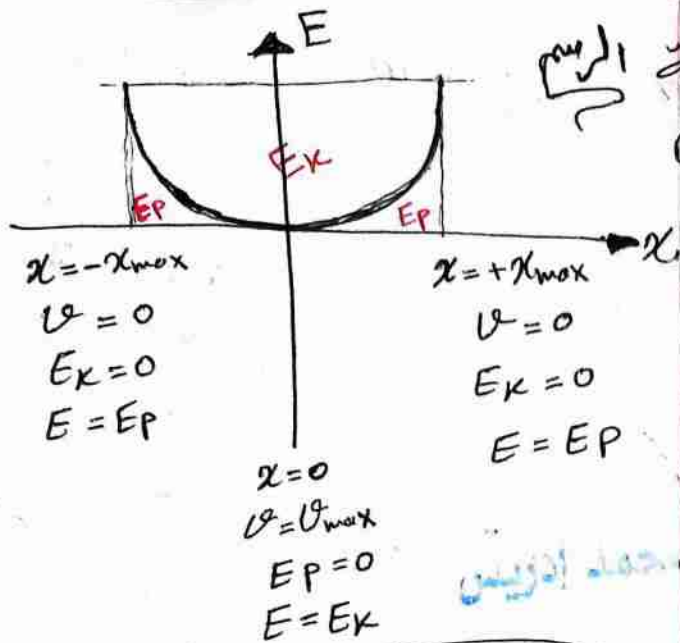 E
الرسم
Ek
Ep
Ep
x
x = -xmax
v = 0
Ek = 0
E = Ep
x = +xmax
v = 0
Ek = 0
E = Ep
x = 0
v = vmax
Ep = 0
E = Ek
إدريس